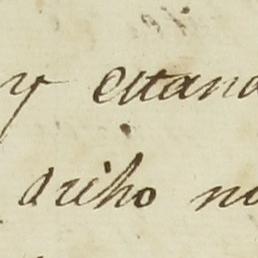 y estand
dicho no